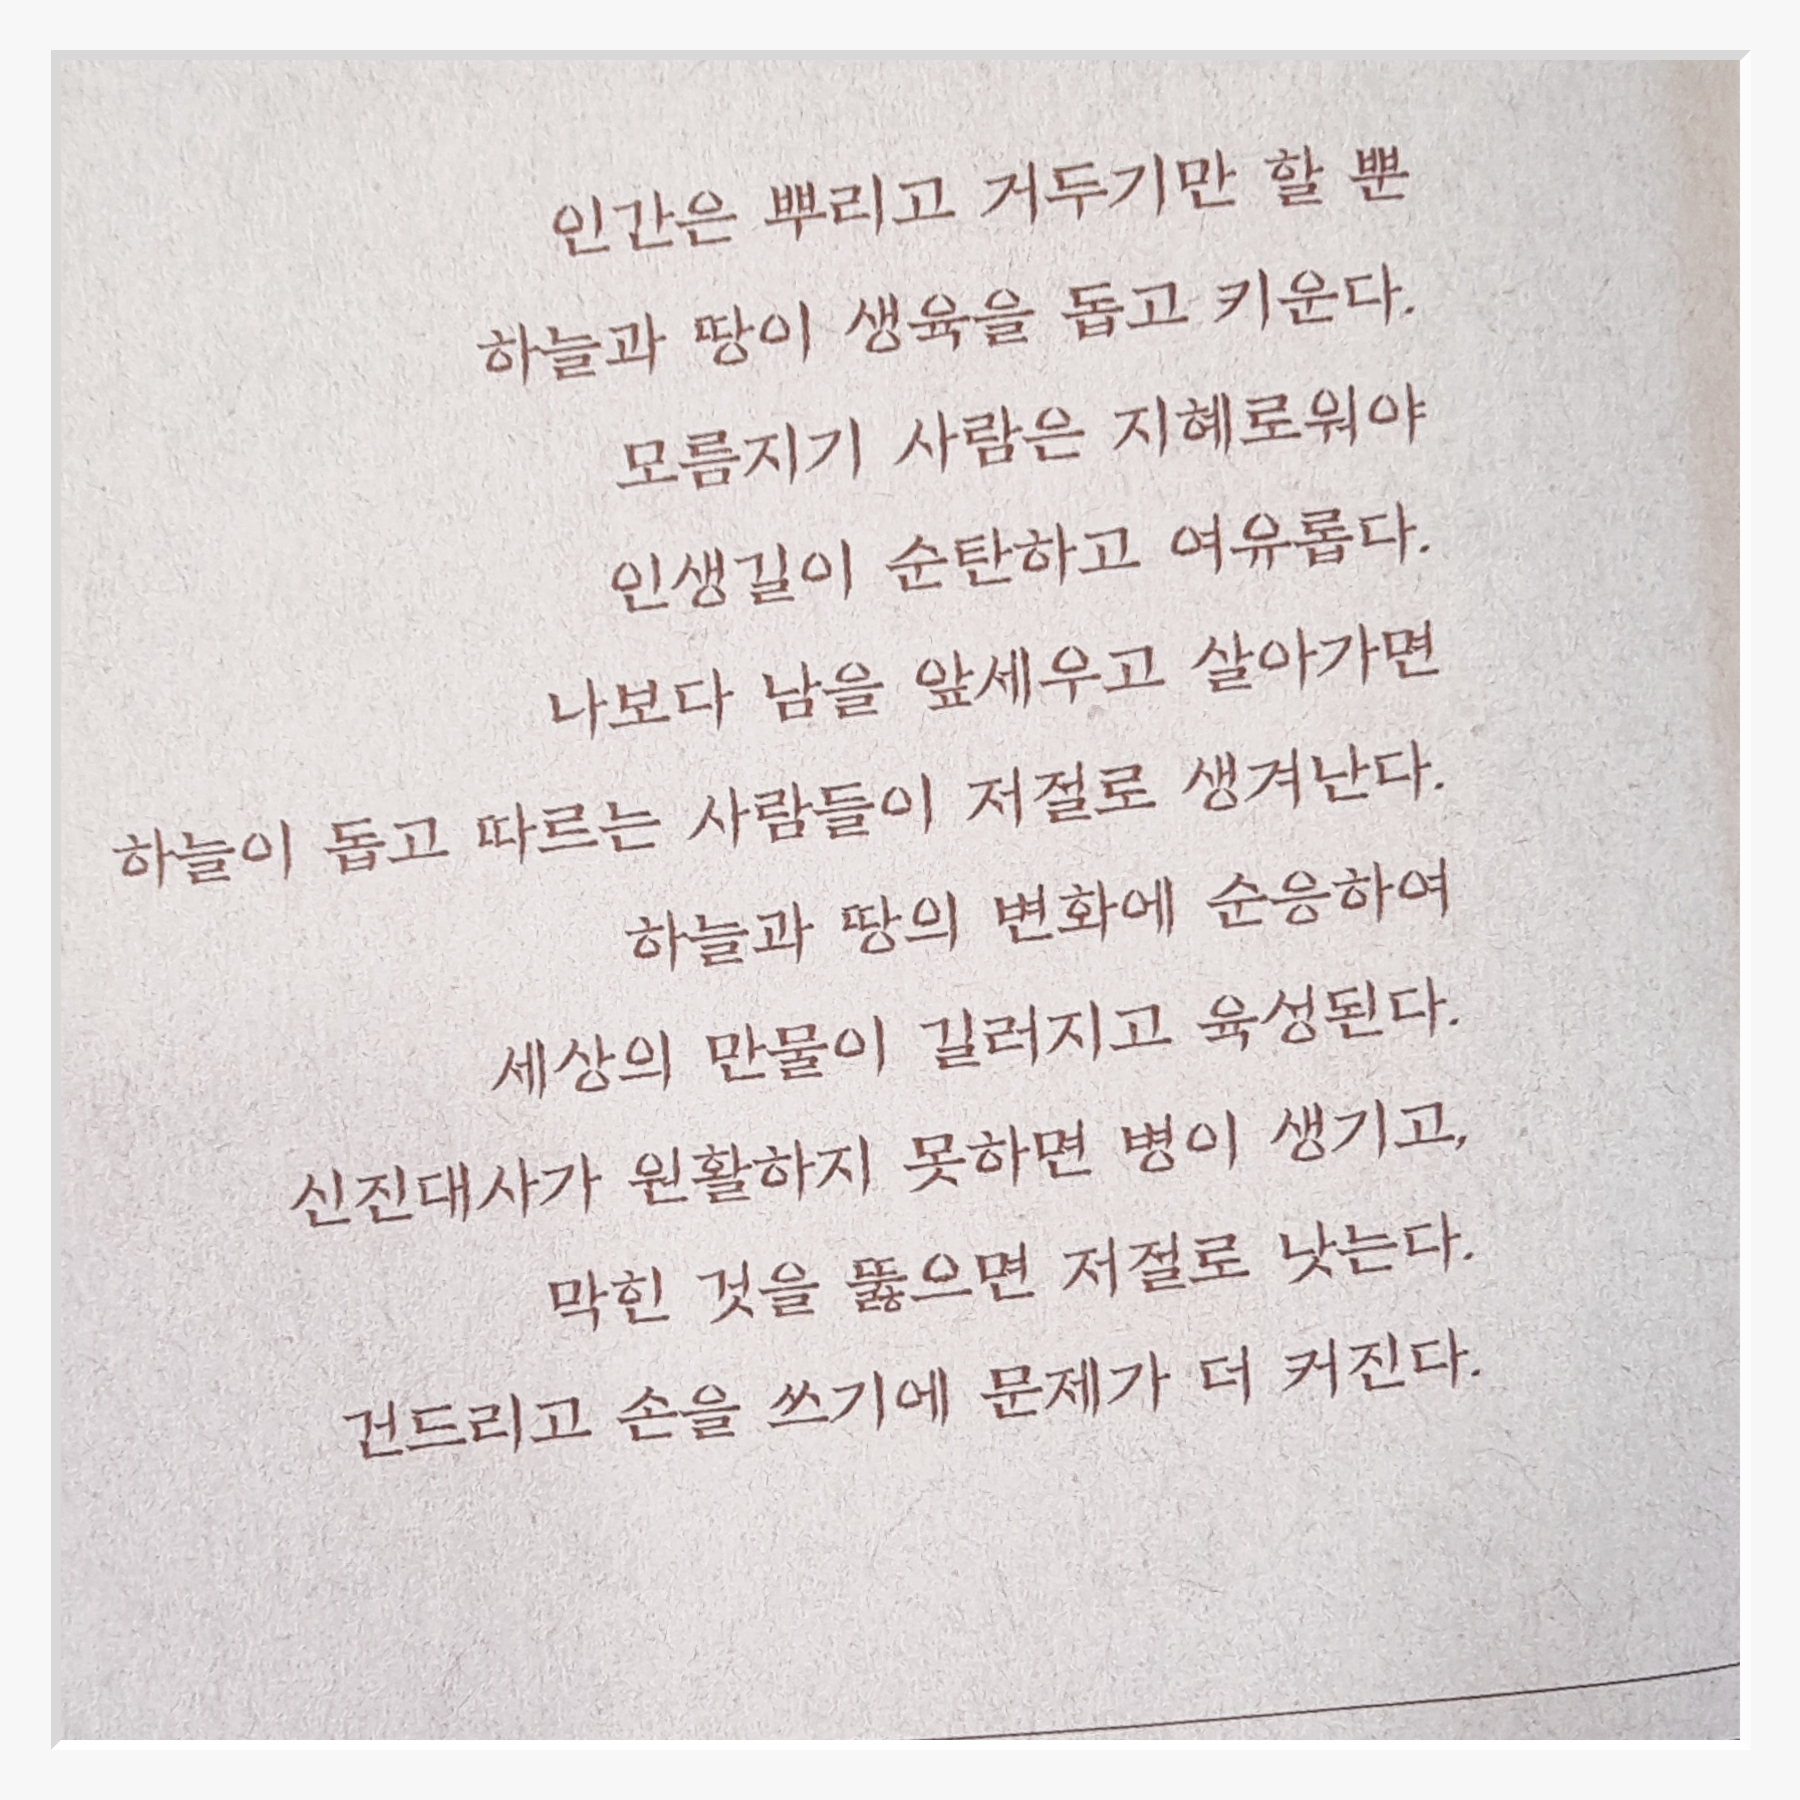 인간은 뿌리고 거두기만 할 뿐
하늘과 땅이 생육을 돕고 키운다.
모름지기 사람은 지혜로워야
인생길이 순탄하고 여유롭다.
나보다 남을 앞세우고 살아가면
하늘이 돕고 따르는 사람들이 저절로 생겨난다.
하늘과 땅의 변화에 순응하여
세상의 만물이 길러지고 육성된다.
신진대사가 원활하지 못하면 병이 생기고,
막힌 것을 뚫으면 저절로 낫는다.
건드리고 손을 쓰기에 문제가 더 커진다.